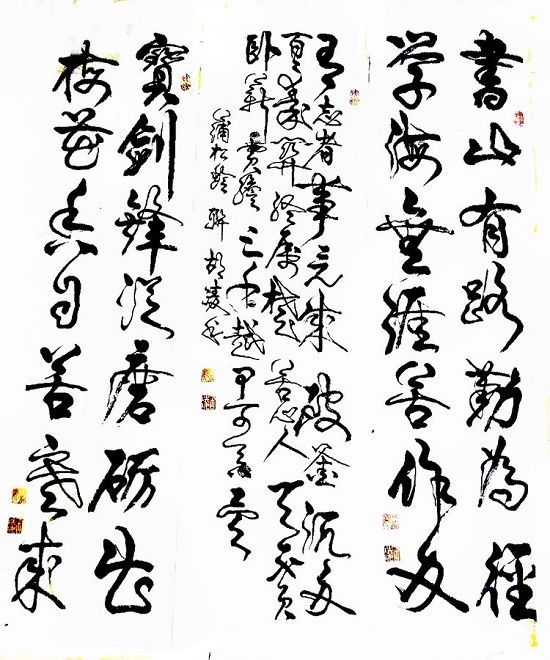 書山有路勤為徑
学海無涯苦作舟
有志者事竟成破釜沉舟
百二秦關終屬楚苦心人天不負
臥薪嘗膽三千越甲可吞吳
蒲松齡聯
寶劍鋒從磨礪出
梅花香自苦寒來